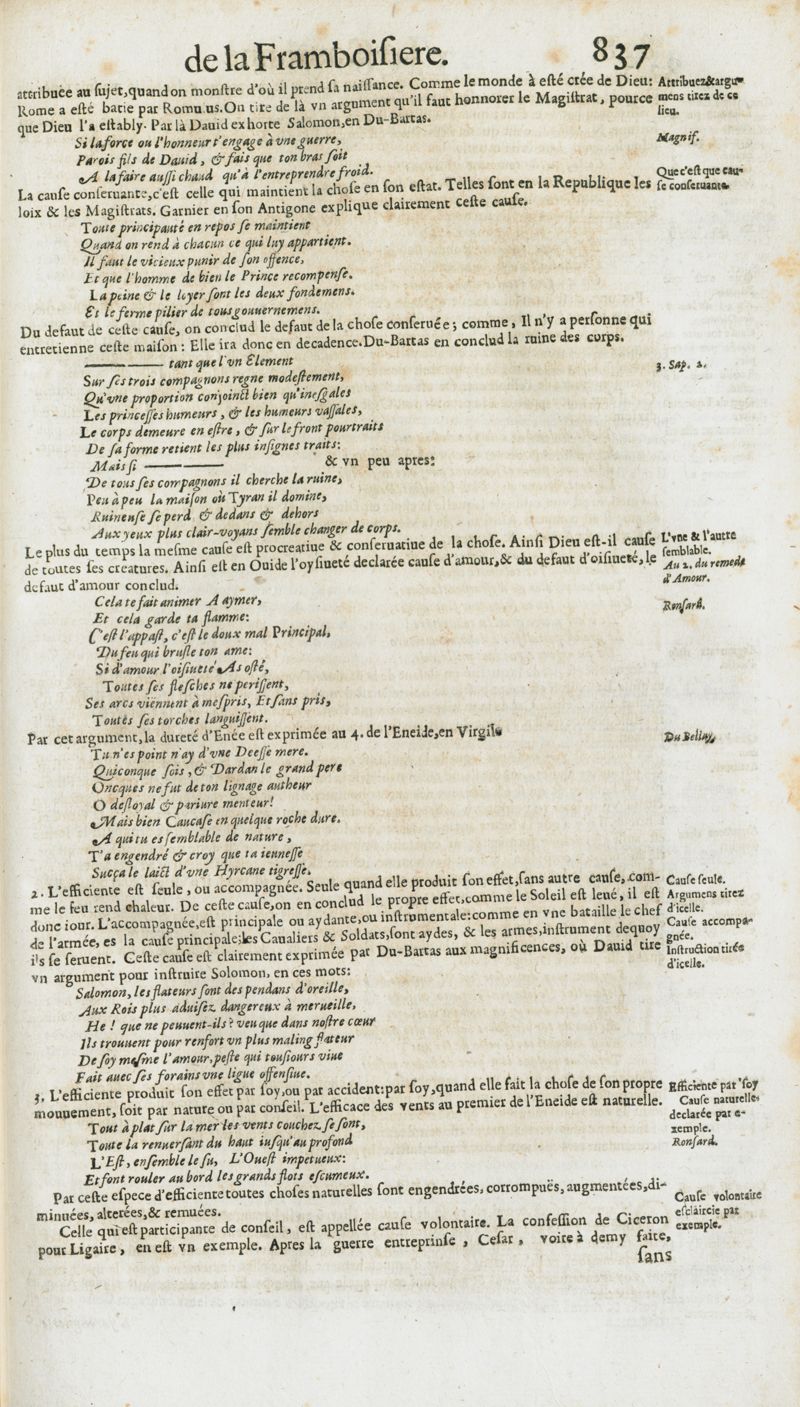 de la Framboisiere. 837
attribuée au ſujet, quand on monſtre d'où il prend ſa naiſſance. Comme le monde à eſté crée de Dieu: Attribuez & argu-
Rome a eſté batie par Romulus. On tire de là vn argument qu'il faut honnorer le Magiſtrat, pource mens tirez de ce
que Dieu l'a eſtably. Par là Dauid exhorte Salomon, en Du-Bartas. lieu.
Si la force ou l'honneur t'engage à vne guerre, Magnif.
Parois fils de Dauid, & fais que ton bras ſoit
A la faire auſſi chaud qu'à l'entreprendre froid. Que c'eſt que cau-
La cauſe conſeruante, c'eſt celle qui maintient la choſe en ſon eſtat. Telles ſont en la Republique les ſe conſeruante.
loix & les Magiſtrats. Garnier en ſon Antigone explique clairement ceſte cauſe.
Toute principauté en repos ſe maintient
Quand on rend à chacun ce qui luy appartient.
Il faut le vicieux punir de ſon offence,
Et que l'homme de bien le Prince recompenſe.
La peine & le loyer ſont les deux fondemens.
Et le ferme pilier de tous gouuernemens.
Du defaut de ceſte cauſe, on conclud le defaut de la choſe conſeruée; comme, Il n'y a perſonne qui
entretienne ceſte maiſon: Elle ira donc en decadence. Du-Bartas en conclud la ruine des corps.
——— tant que l'vn Element 3. Sap. 2.
Sur ſes trois compagnons regne modeſtement,
Qu'vne proportion conjoinct bien qu'ineſgales
Les princeſſes humeurs, & les humeurs vaſſales,
Le corps demeure en eſtre, & ſur le front pourtraits
De ſa forme retient les plus inſignes traits:
Mais ſi ——— & vn peu apres:
De tous ſes compagnons il cherche la ruine,
Peu à peu la maiſon où Tyran il domine,
Ruineuſe ſe perd & dedans & dehors
Aux yeux plus clair-voyans ſemble changer de corps.
Le plus du temps la meſme cauſe eſt procreatiue & conſeruatiue de la choſe. Ainſi Dieu eſt-il cauſe L'vne & l'autre
de toutes ſes creatures. Ainſi eſt en Ouide l'oyſiueté declarée cauſe d'amour, & du defaut d'oiſiueté, le ſemblable.
defaut d'amour conclud. Au 2. du remede
d'Amour.
Cela te fait animer A aymer, Ronſard.
Et cela garde ta flamme:
C'eſt l'appaſt, c'eſt le doux mal Principal,
Du feu qui bruſle ton ame:
Si d'amour l'oiſiueté As oſté,
Toutes ſes fleſches ne periſſent,
Ses arcs viẽnnent à meſpris, Et ſans pris,
Toutes ſes torches languiſſent.
Par cet argument, la dureté d'Enée eſt exprimée au 4. de l'Eneide, en Virgile Du Bellay,
Tu n'es point n'ay d'vne Deeſſe mere.
Quiconque ſois, & Dardan le grand pere
Oncques ne fut de ton lignage autheur
O deſloyal & pariure menteur!
Mais bien Caucaſe en quelque roche dure.
A qui tu es ſemblable de nature,
T'a engendré & croy que ta ieuneſſe
Succa le laict d'vne Hyrcane tigreſſe.
2. L'efficiente eſt ſeule, ou accompagnée. Seule quand elle produit ſon effet, ſans autre cauſe, com- Cauſe ſeule.
me le feu rend chaleur. De ceſte cauſe, on en conclud le propre effet, comme le Soleil eſt leué, il eſt Argumens tirez
donc iour. L'accompagnée, eſt principale ou aydante, ou inſtrumentale: comme en vne bataille le chef d'icelle.
de l'armée, es la cauſe principale; les Caualiers & Soldats, ſont aydes, & les armes, inſtrument dequoy Cauſe accompa-
ils ſe ſeruent. Ceſte cauſe eſt clairement exprimée par Du-Bartas aux magnificences, où Dauid tire gnée.
vn argument pour inſtruire Solomon, en ces mots: Inſtruction tirée
d'icelle.
Salomon, les flateurs ſont des pendans d'oreille,
Aux Rois plus aduiſez dangereux à merueille,
He! que ne peuuent-ils? veu que dans noſtre cœur
Ils trouuent pour renfort vn plus maling flateur
De ſoy meſme l'amour, peſte qui touſiours viue
Fait auec ſes forains vne ligue offenſiue.
3. L'efficiente produit ſon effet par ſoy, ou par accident: par ſoy, quand elle fait la choſe de ſon propre Efficiente par ſoy
mouuement, ſoit par nature ou par conſeil. L'efficace des vents au premier de l'Eneide eſt naturelle. Cauſe naturelle
declarée par e-
Tout à plat ſur la mer les vents couchez ſe ſont, xemple.
Toute la renuerſant du haut iuſqu'au profond Ronſard.
L'Eſt, enſemble le ſu, L'Oueſt impetueux:
Et font rouler au bord les grands flots eſcumeux.
Par ceſte eſpece d'efficiente toutes choſes naturelles ſont engendrées, corrompues, augmentées, di- Cauſe volontaire
minuées, alterées, & remuées. eſclaircie par
Celle qui eſt participante de conſeil, eſt appellée cauſe volontaire. La confeſſion de Ciceron exemple.
pour Ligaire, en eſt vn exemple. Apres la guerre entreprinſe, Ceſar, voire à demy faite,
ſans